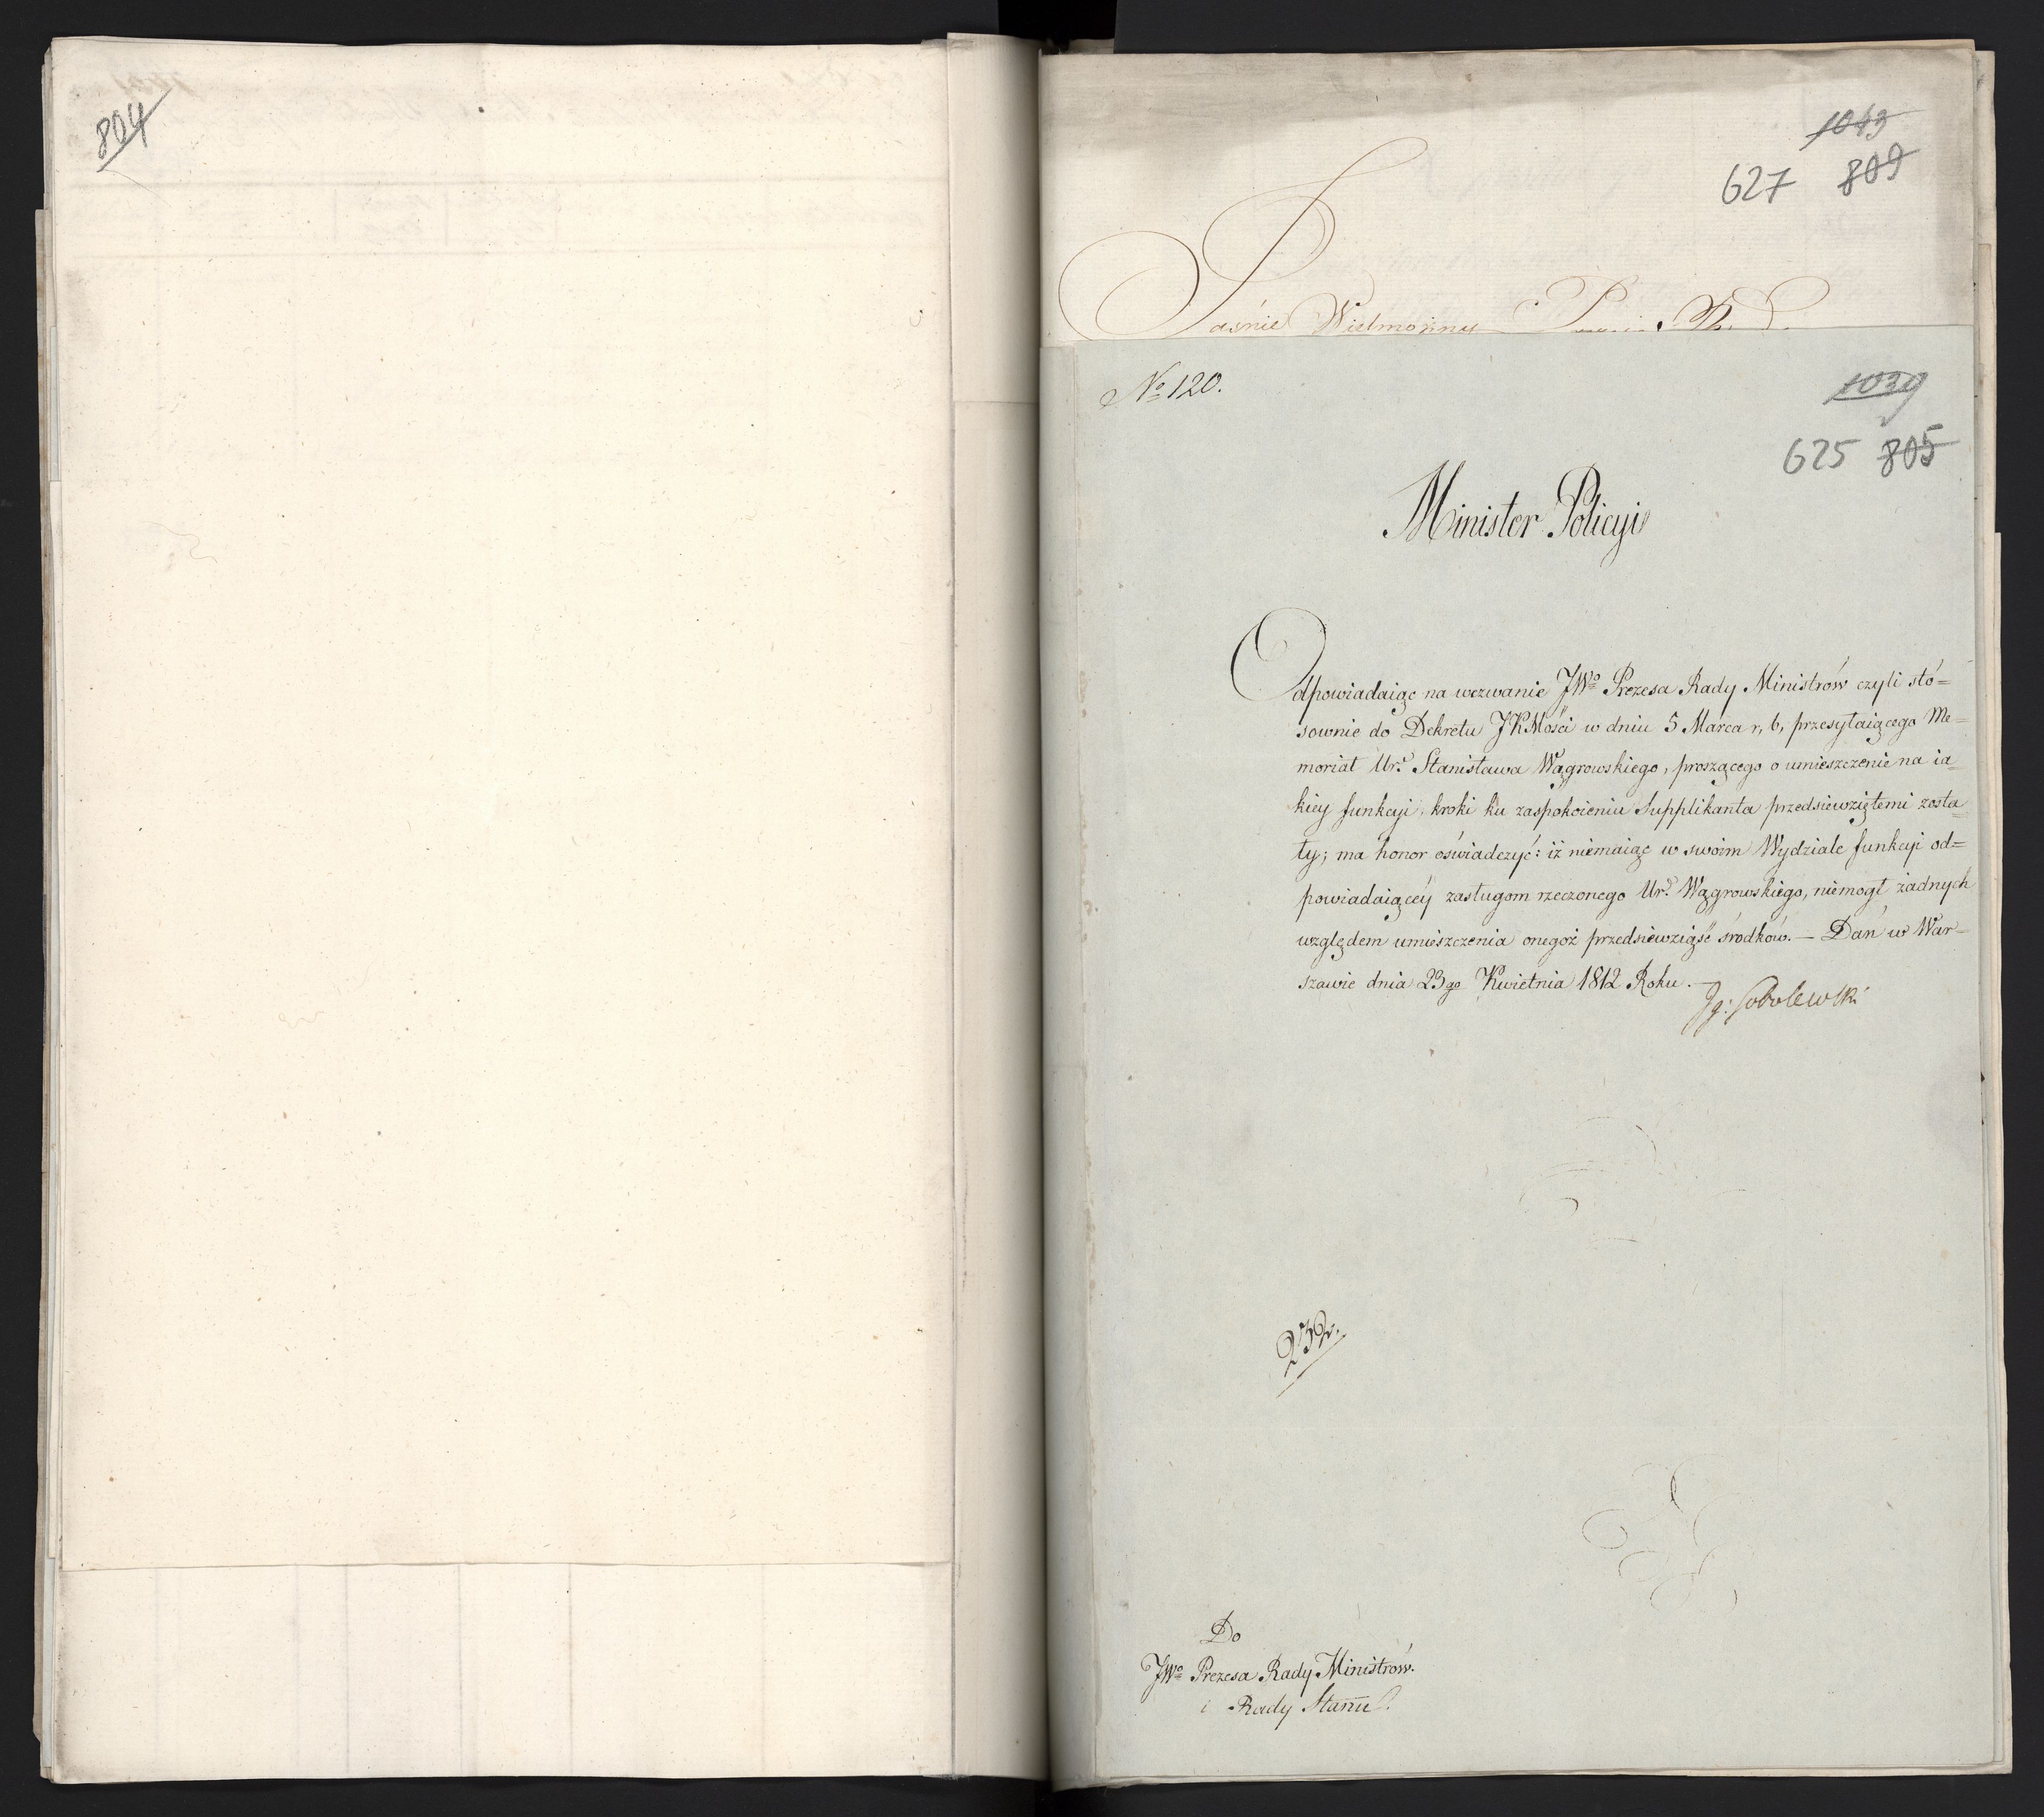 804
1043
627 809
Jaśnie Wielmożny
№ 120.
1039
625 805
Minister Policyi
Odpowiadaiąc na wezwanie JWo Prezesa Rady Ministrów czyli stó=
sownie do Dekretu JKMości w dniu 5 Marca r, b, przesyłaiącego Me=
moriał Ur. Stanisława Wągrowskiego, proszącego o umieszczenie na ia=
kiey funkcyi, kroki ku zaspokoieniu Supplikanta przedsiewziętemi zosta=
ły; ma honor oświadczyć: iż niemaiąc w swoim Wydziale funkcyi od=
powiadaiącéy zasługom rzeczonego Ur. Wągrowskiego, niemógł żadnych
względem umieszczenia onegoż przedsiewziąść środków. — Dań w War=
szawie dnia 23go Kwietnia 1812 Roku. —
Jg: Sobolewski
232.
Do
JWo Prezesa Rady Ministrów.
i Rady Stanu.